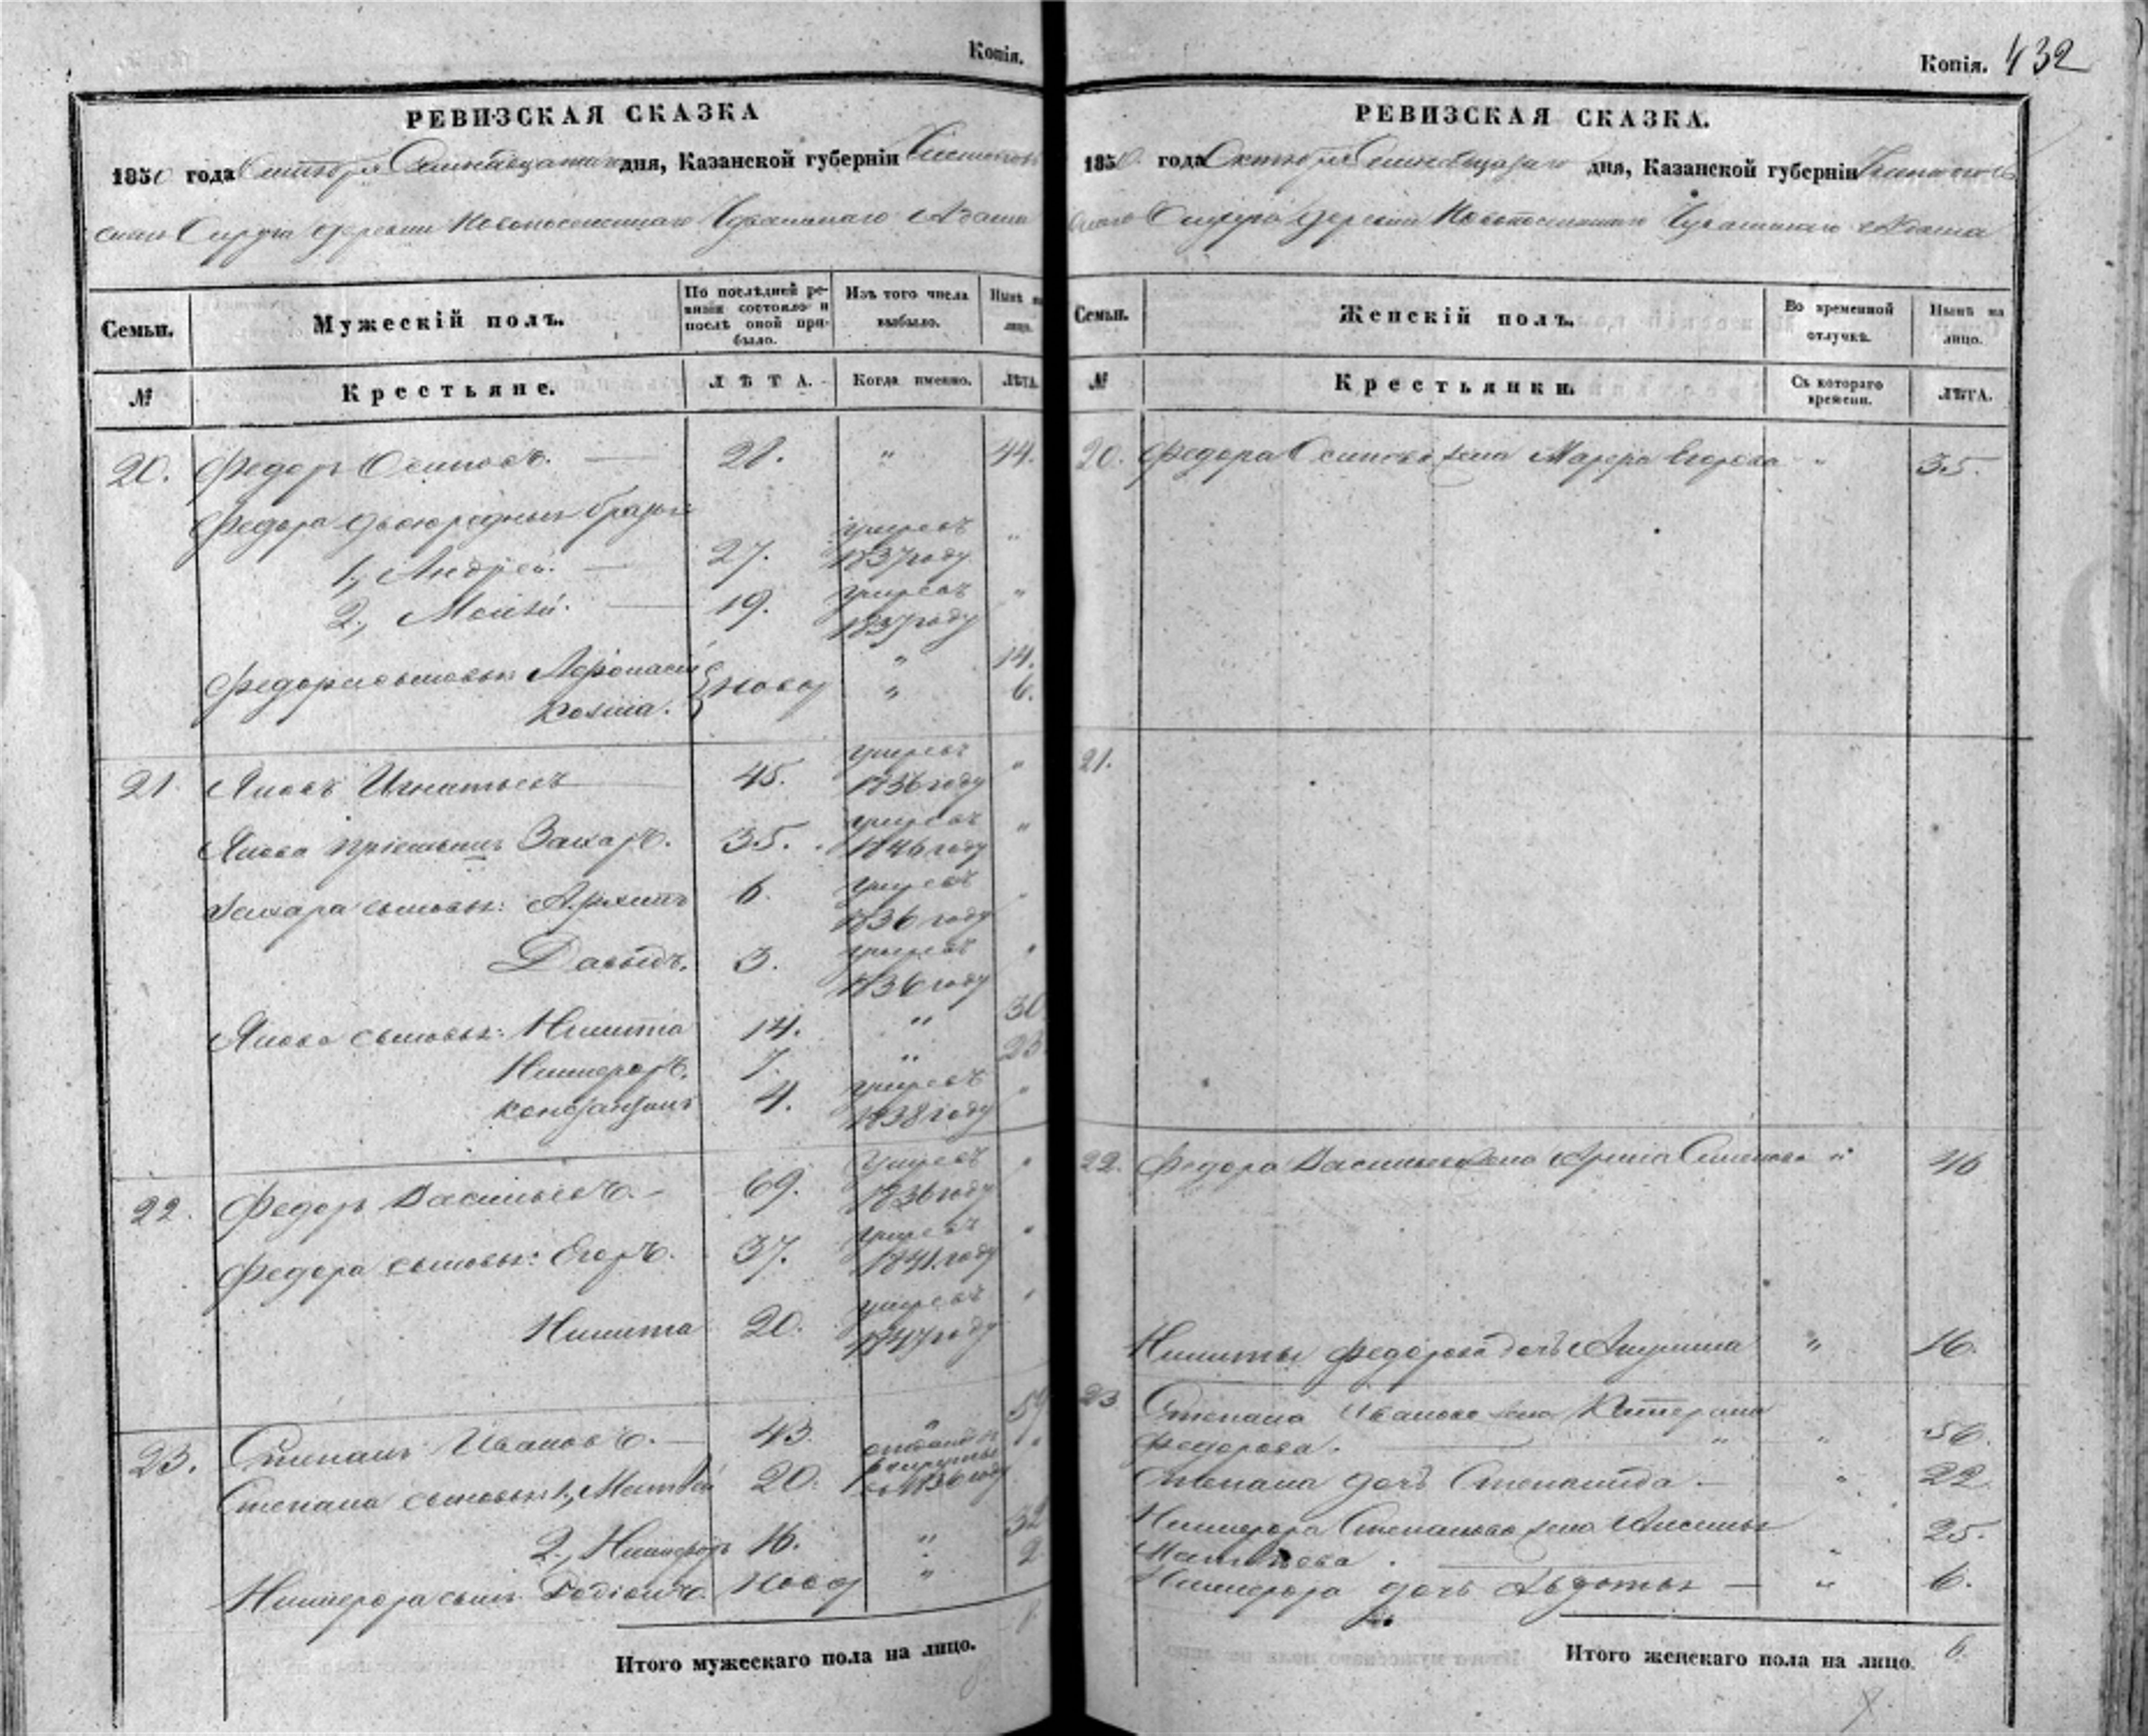 Копія.
РЕВИЗСКАЯ СКАЗКА
1850 года Октября дня, Казанской губерніи Чистополь
скаго Округа деревни Новопоселеннаго Чувашскаго Адама
Семьи.
Мужескій полъ.
По послѣдней ре-
визіи состояло и
послѣ оной при-
было.
Изъ того числа
выбыло.
Нынѣ на
лицо.
№
Крестьяне.
ЛѢТА.
Когда именно.
ЛѢТА.
20. Федоръ Осиповъ. 28. " 44.
Федора двоюродныя братья
1, Андрей. 27. умревъ 1837 году "
2, Моисей. 19. умревъ 1837 году "
Федора сыновья: Афонасій новор " 14.
Козма. " 6.
21. Яковъ Игнатьевъ 45. умревъ 1836 году "
Якова пріемышъ Захаръ. 35. умревъ 1846 году "
Захара сыновья: Архипъ 6. умревъ 1836 году "
Давыдъ. 3. умревъ 1836 году "
Якова сыновья: Никита 14. " 30
Никифоръ. 7. " 23
Констянтинъ 4. умревъ 1838 году "
22. Федоръ Васильевъ. 69. умревъ 1836 году "
Федора сыновья: Егоръ. 37. умревъ 1841 году "
Никита 20. умревъ 1847 году "
23. Степанъ Ивановъ. 43. " 59
Степана сыновья: 1, Матвѣй 20. отданъ в рекруты в 1836 году "
2, Никифоръ 16. " 32
Никифора сынъ Родіонъ. новор " 2
Итого мужескаго пола на лицо.
8
Копія. 432
РЕВИЗСКАЯ СКАЗКА.
1850 года Октября дня, Казанской губерніи Чистополь
скаго Округа деревни Новопоселеннаго Чувашскаго Адама
Семьи.
Женскій полъ.
Во временной
отлучкѣ.
Нынѣ на
лицо.
№
Крестьянки.
Съ котораго
времени.
ЛѢТА.
20. Федора Осипова жена Марфа Егорова " 35.
21.
22. Федора Васильева жена Арина Семенова " 46
Никиты Федорова дочь Акулина " 16.
23 Степана Иванова жена Катерина
Федорова. " " 56.
Степана дочь Степанида " 22
Никифора Степанова жена Аксинья 25.
Матвѣева. "
Никифора дочь Авдотья " 6.
Итого женскаго пола на лицо. 6.